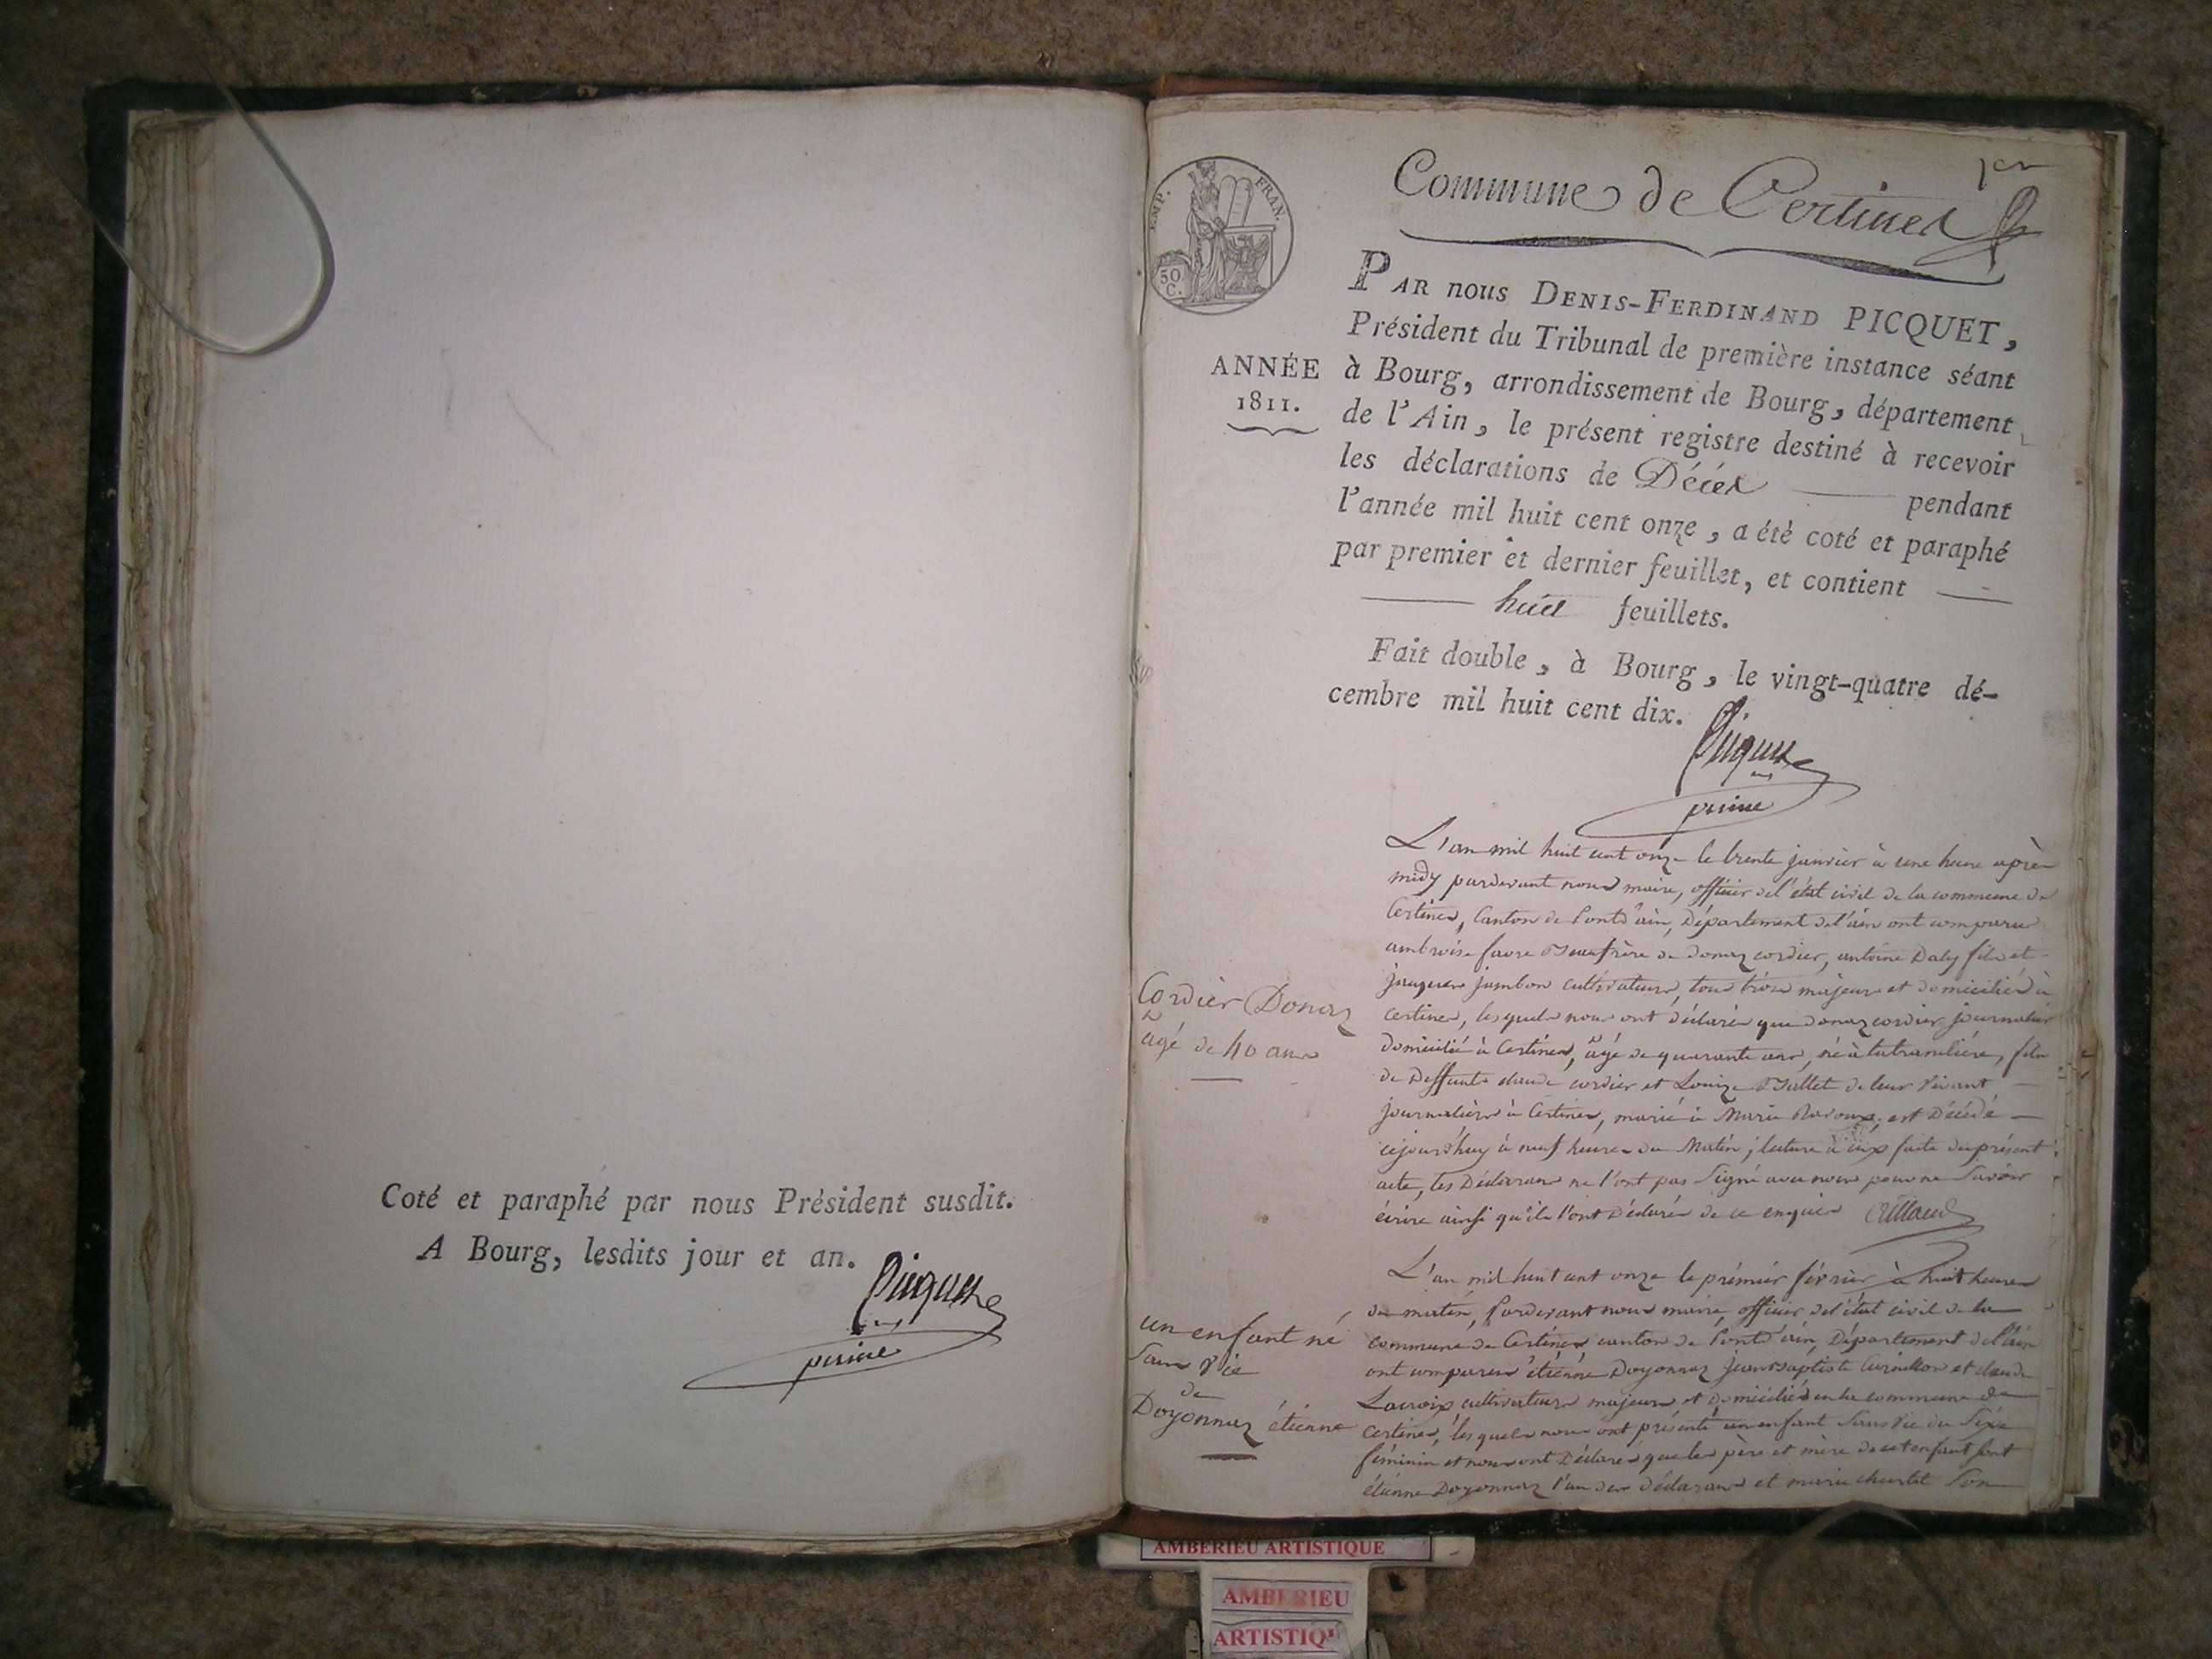 Coté et paraphé par nous Président susdit.
A Bourg, lesdits jour et an.
Picquet
1er
Commune de Certines
EMP. FRAN.
50 C.
ANNÉE
1811.
PAR nous DENIS-FERDINAND PICQUET,
Président du Tribunal de première instance séant
à Bourg, arrondissement de Bourg, département
de l'Ain, le présent registre destiné à recevoir
les déclarations de Décès pendant
l'année mil huit cent onze, a été coté et paraphé
par premier et dernier feuillet, et contient
huit feuillets.
Fait double, à Bourg, le vingt-quatre dé-
cembre mil huit cent dix.
Picquet
Cordier Donaz
âgé de 40 ans
L'an mil huit cent onze le trente janvier à une heure après
midy pardevant nous maire, officier de l'état civil de la commune de
Certines, Canton de Pontd'ain, Département de l'ain ont comparu
ambroise favre Beaufrère de donaz cordier, antoine Daly fils et
jacques jambon cultivateurs, tous trois majeurs et domiciliés à
certines, lesquels nous ont déclaré que donaz cordier journalier
domicilié à Certines, âgé de quarante ans, né à latranclière, fils
de Deffunts claude cordier et Louize Ballet de leur vivant
journaliers à Certines, marié à Marie, est Décédé
cejourd'huy à neuf heures du Matin; lecture à eux faite du présent
acte, les Déclarans ne l'ont pas Signé avec nous pour ne Savoir
écrire ainsi qu'ils l'ont Déclaré de ce enquis
un enfant né
Sans vie
de
Doyonnaz étienne
L'an mil huit cent onze le prémier février à huit heures
du matin, Pardevant nous maire, officier de l'état civil de la
commune de Certines canton de Pontd'ain, Département de l'ain
ont comparu étiénne Doyonnaz jeanbaptiste et claude
Lacroix cultivateurs majeurs et Domiciliés en la commune de
Certines, lesquels nous ont présenté un enfant Sans vie du Séxe
féminin et nous ont Déclaré que les père et mère de cet enfant sont
étiénne Doyonnaz l'un des déclarans et marie Son
AMBERIEU ARTISTIQUE
AMBERIEU
ARTISTIQU